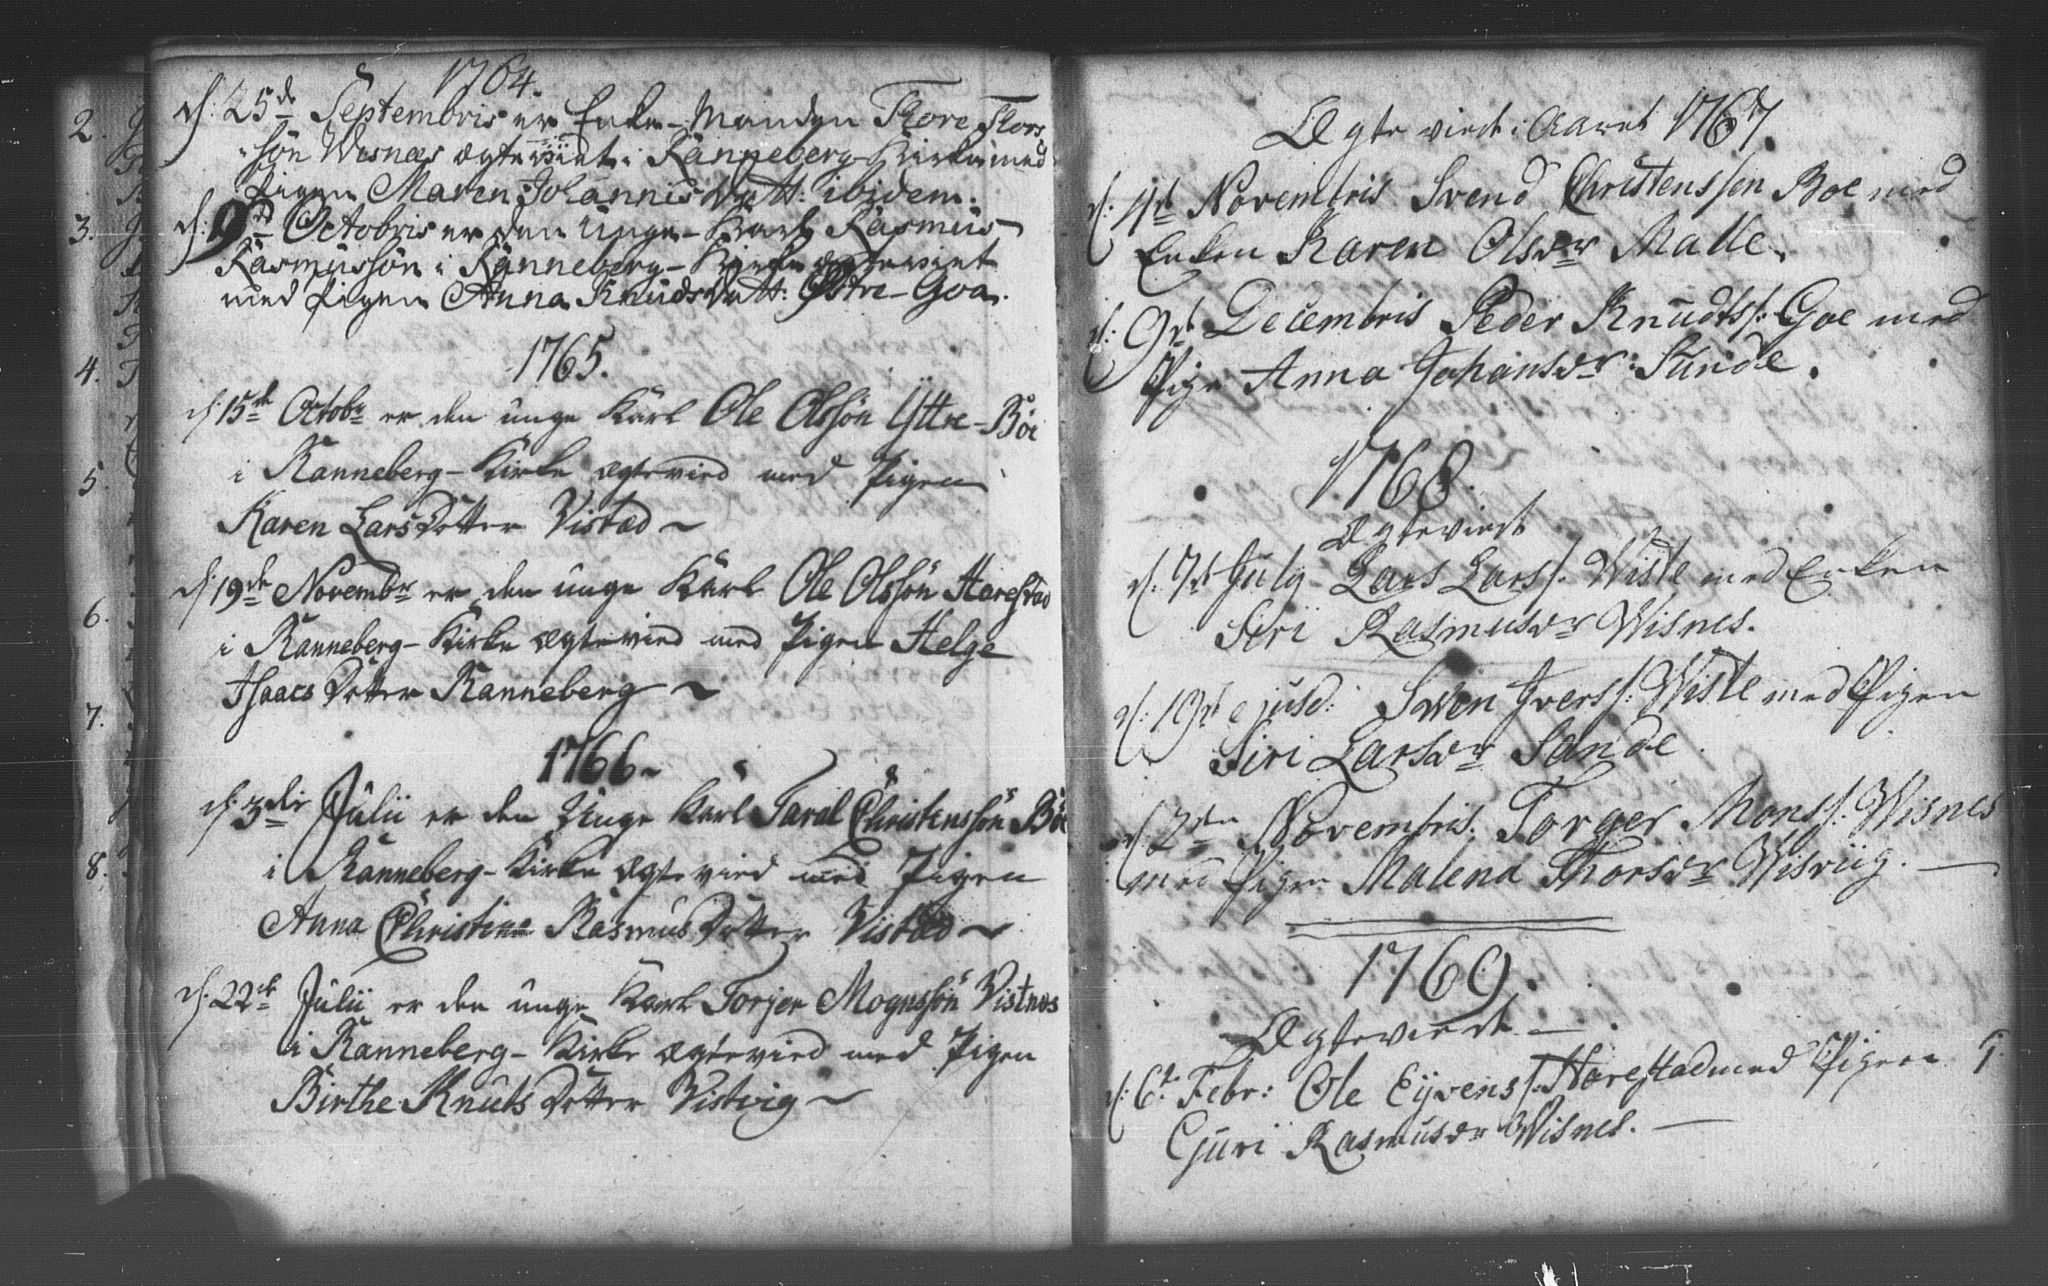 1764.
d: 25de Septembris er Enke-Manden Thore Thors
søn Wisnæs ægteviet i Ranneberg-Kirke med
Pigen Maren Johannis Datt: ibidem.
d: 9de Octobris er den unge-Karl Rasmus
Rasmussøn i Ranneberg-Kirke ægteviet
med Pigen Anna Knuds Datt: Østre-Goa.
1765.
d: 15de Octobr er den unge Karl Ole Olssøn Yttre-Bøe
i Ranneberg-Kirke ægtevied med Pigen
Karen Lars Dotter Vistad
d: 19de Novembr er den unge Karl Ole Olssøn Harestad
i Ranneberg-Kirke ægtevied med Pigen Helge
Isaacs Dotter Ranneberg
1766
d: 3die Julii er den Unge Karl Taral Christenssøn Bøe
i Ranneberg-Kirke ægtevied med Pigen
Anna Christine Rasmus Dotter Vistad
d: 22de Julii er den unge Karl Torjer Mognssøn Vistnes
i Ranneberg-Kirke ægtevied med Pigen
Birthe Knuts Dotter Vistvig
2.
3.
4.
5.
6.
7.
8.
Ægte viedt i Aaret 1767.
d: Novembris Svend Christenssøn Boe med
Enken Karen Olsdr Malle.
d: 9de Decembris Peder Knudts: Goe med
Pige Anna Johansdr: Sunde.
1768.
Ægteviedt
d: 7de July Lars Larss: Wiste med Enken
Siri Rasmusdr Wisnes.
d: 19de ejusd: Swen Iverss: Wiste med Pigen
Siri Larsdr Sande.
d: 2den Novembris. Torger Monss: Wisnes
med Pigen Malena Thorsdr Wisviig.
1769.
Ægteviedt
d: 6te Febr: Ole Eyvens: Harestad med Pigen
Guri Rasmusdr Wisnes.